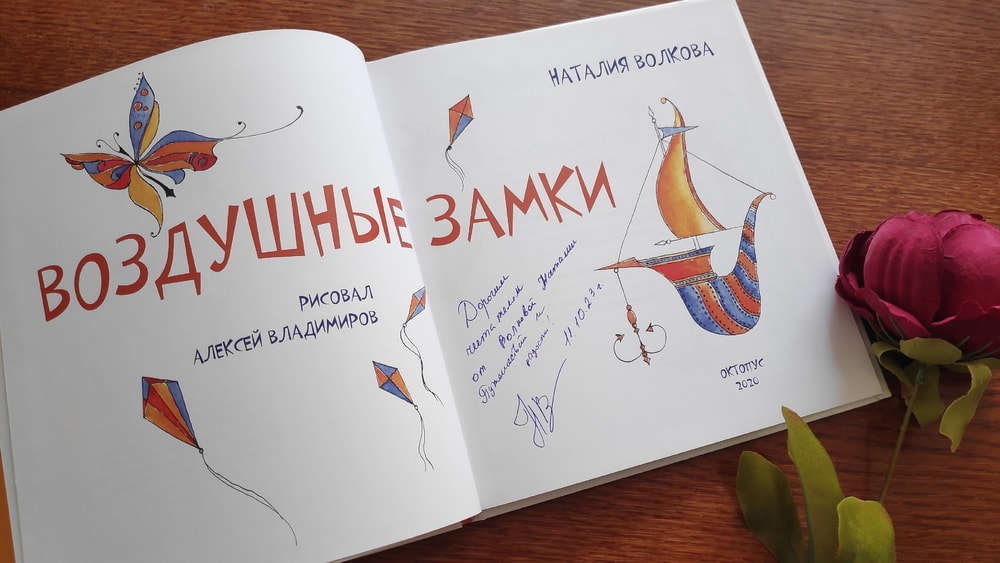 НАТАЛИЯ ВОЛКОВА
ВОЗДУШНЫЕ ЗАМКИ
РИСОВАЛ
АЛЕКСЕЙ ВЛАДИМИРОВ
Дорогим
читателям
от Волковой Наталии
Путешествий и
радости!
11.10.23 г.
НВ
ОКТОПУС
2020